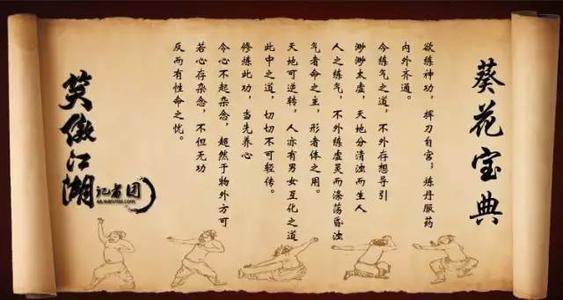 葵花宝典
欲练神功，挥刀自宫，炼丹服药
内外齐通。
今练气之道，不外存想导引
渺渺太虚，天地分清浊而生人
人之练气，不外练虚灵而涤荡昏浊
气者命之主，形者体之用。
天地可逆转，人亦有男女互化之道
此中之道，切切不可轻传。
修练此功，当先养心
令心不起杂念，超然于物外方可
若心存杂念，不但无功
反而有性命之忧。
笑傲江湖
记者团